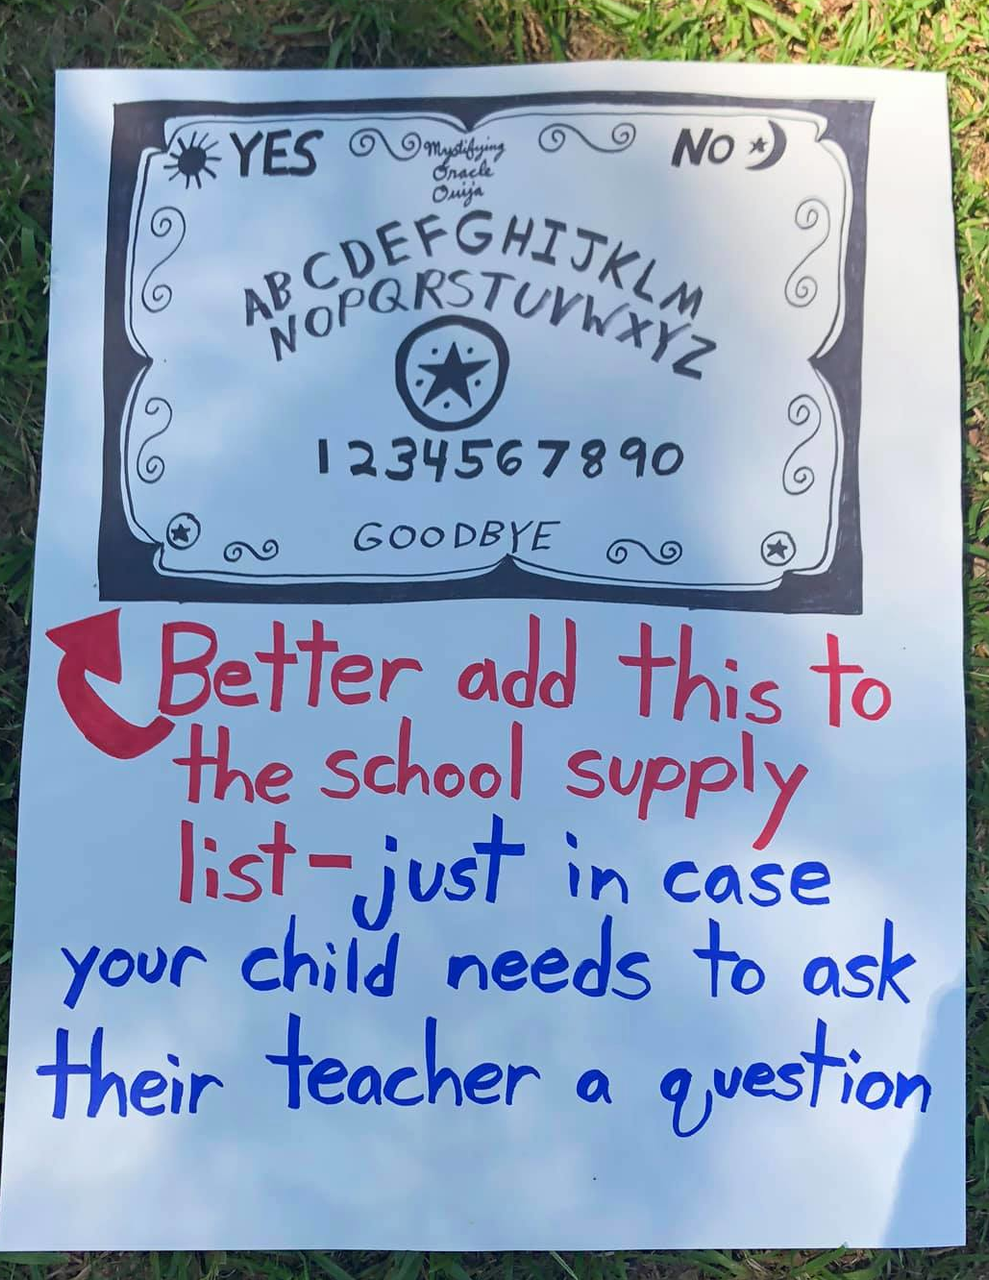 YES
Mystifying
Oracle
Ouija
NO
ABCDEFGHIJKLM
NOPQRSTUVWXYZ
1234567890
GOODBYE
Better add this to
the school supply
list-just in case
your child needs to ask
their teacher a question